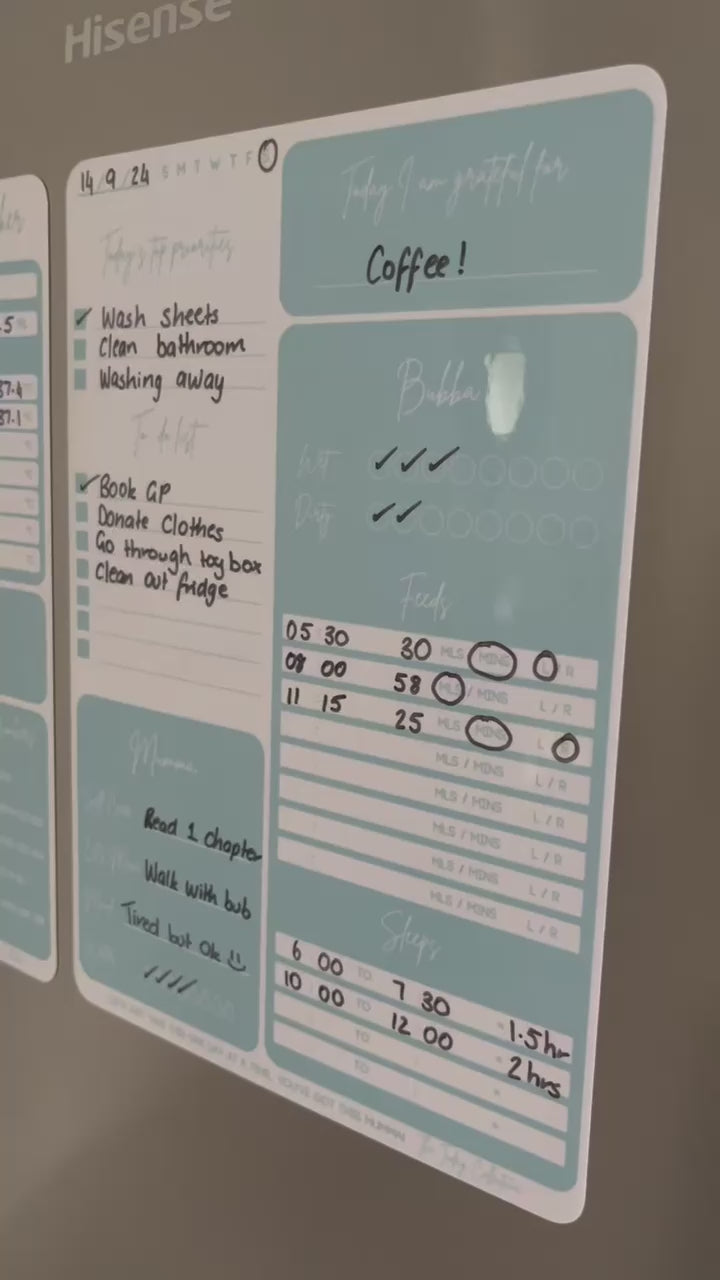 Hisense
14/9/24 S M T W T F
Today's top priorities
Wash sheets
Clean bathroom
Washing away
To do list
Book GP
Donate Clothes
Go through toy box
Clean out fridge
Mumma
Read 1 Chapter
Walk with bub
Tired but Ok
Today I am grateful for
Coffee!
Bubba
Wet
Dirty
Feeds
05 30 30 MLS MINS R
08 00 58 MLS / MINS L / R
11 15 25 MLS MINS L R
MLS / MINS L / R
MLS / MINS L / R
MLS / MINS L / R
MLS / MINS L / R
MLS / MINS L / R
Sleeps
6 00 TO 7 30 1.5hr
10 00 TO 12 00 2hrs
TO
TO
.5
37.4
37.1